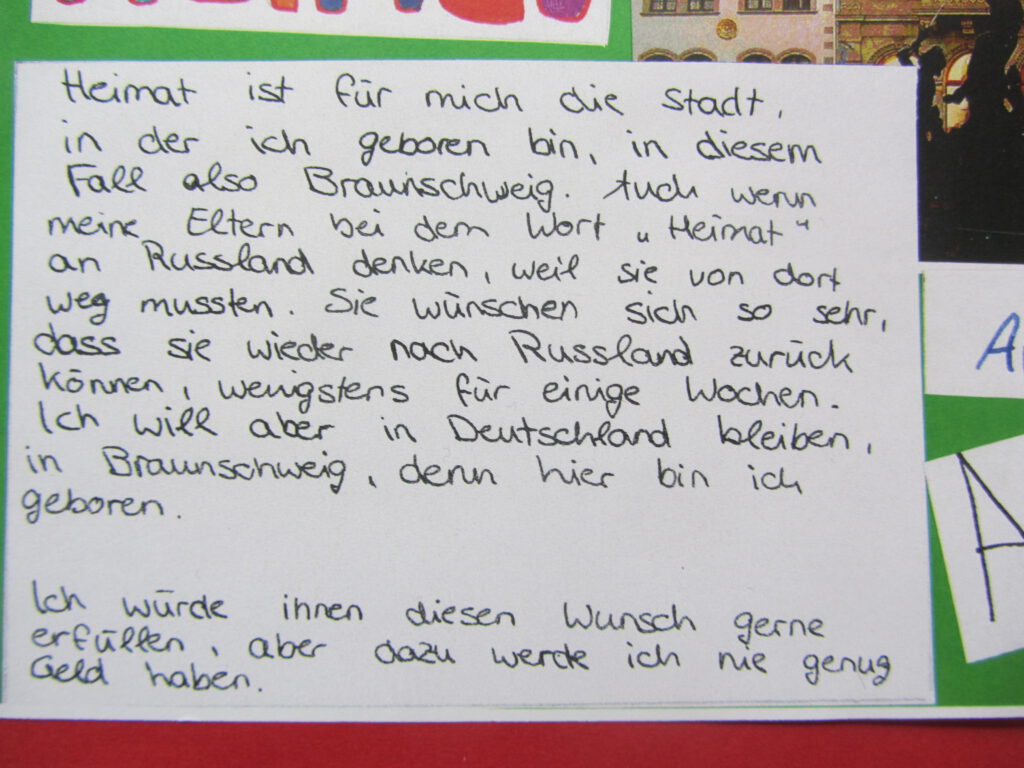 Heimat ist für mich die Stadt,
in der ich geboren bin, in diesem
Fall also Braunschweig. Auch wenn
meine Eltern bei dem Wort „Heimat“
an Russland denken, weil sie von dort
weg mussten. Sie wünschen sich so sehr,
dass sie wieder nach Russland zurück
können, wenigstens für einige Wochen.
Ich will aber in Deutschland bleiben,
in Braunschweig, denn hier bin ich
geboren.
Ich würde ihnen diesen Wunsch gerne
erfüllen, aber dazu werde ich nie genug
Geld haben.
A
A